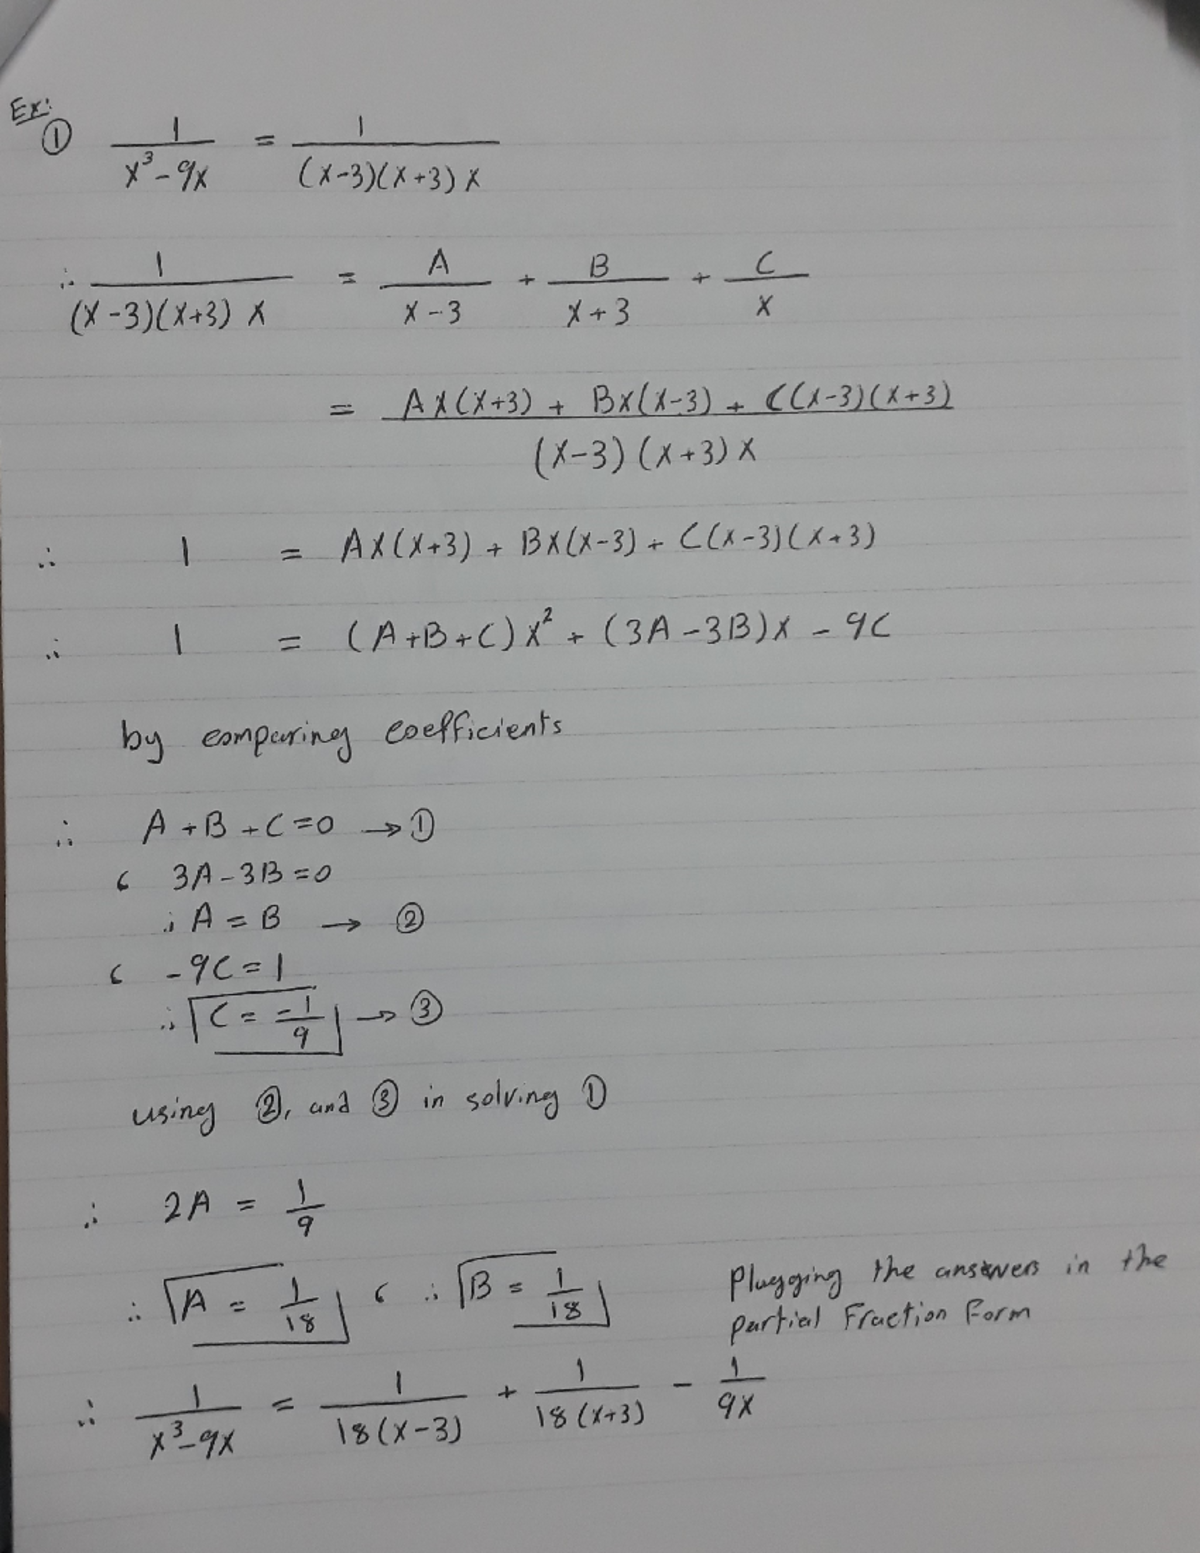 Ex:
① 1/(x³-9x) = 1/((x-3)(x+3)x)
∴ 1/((x-3)(x+3)x) = A/(x-3) + B/(x+3) + C/x
= (Ax(x+3) + Bx(x-3) + C(x-3)(x+3))/((x-3)(x+3)x)
∴ 1 = Ax(x+3) + Bx(x-3) + C(x-3)(x+3)
∴ 1 = (A+B+C)x² + (3A-3B)x - 9C
by comparing coefficients
∴ A+B+C=0 → ①
، 3A-3B=0
∴ A=B → ②
، -9C=1
∴ C = -1/9 → ③
using ②, and ③ in solving ①
∴ 2A = 1/9
∴ A = 1/18 ، ∴ B = 1/18
Plugging the answers in the
partial Fraction Form
∴ 1/(x³-9x) = 1/(18(x-3)) + 1/(18(x+3)) - 1/(9x)